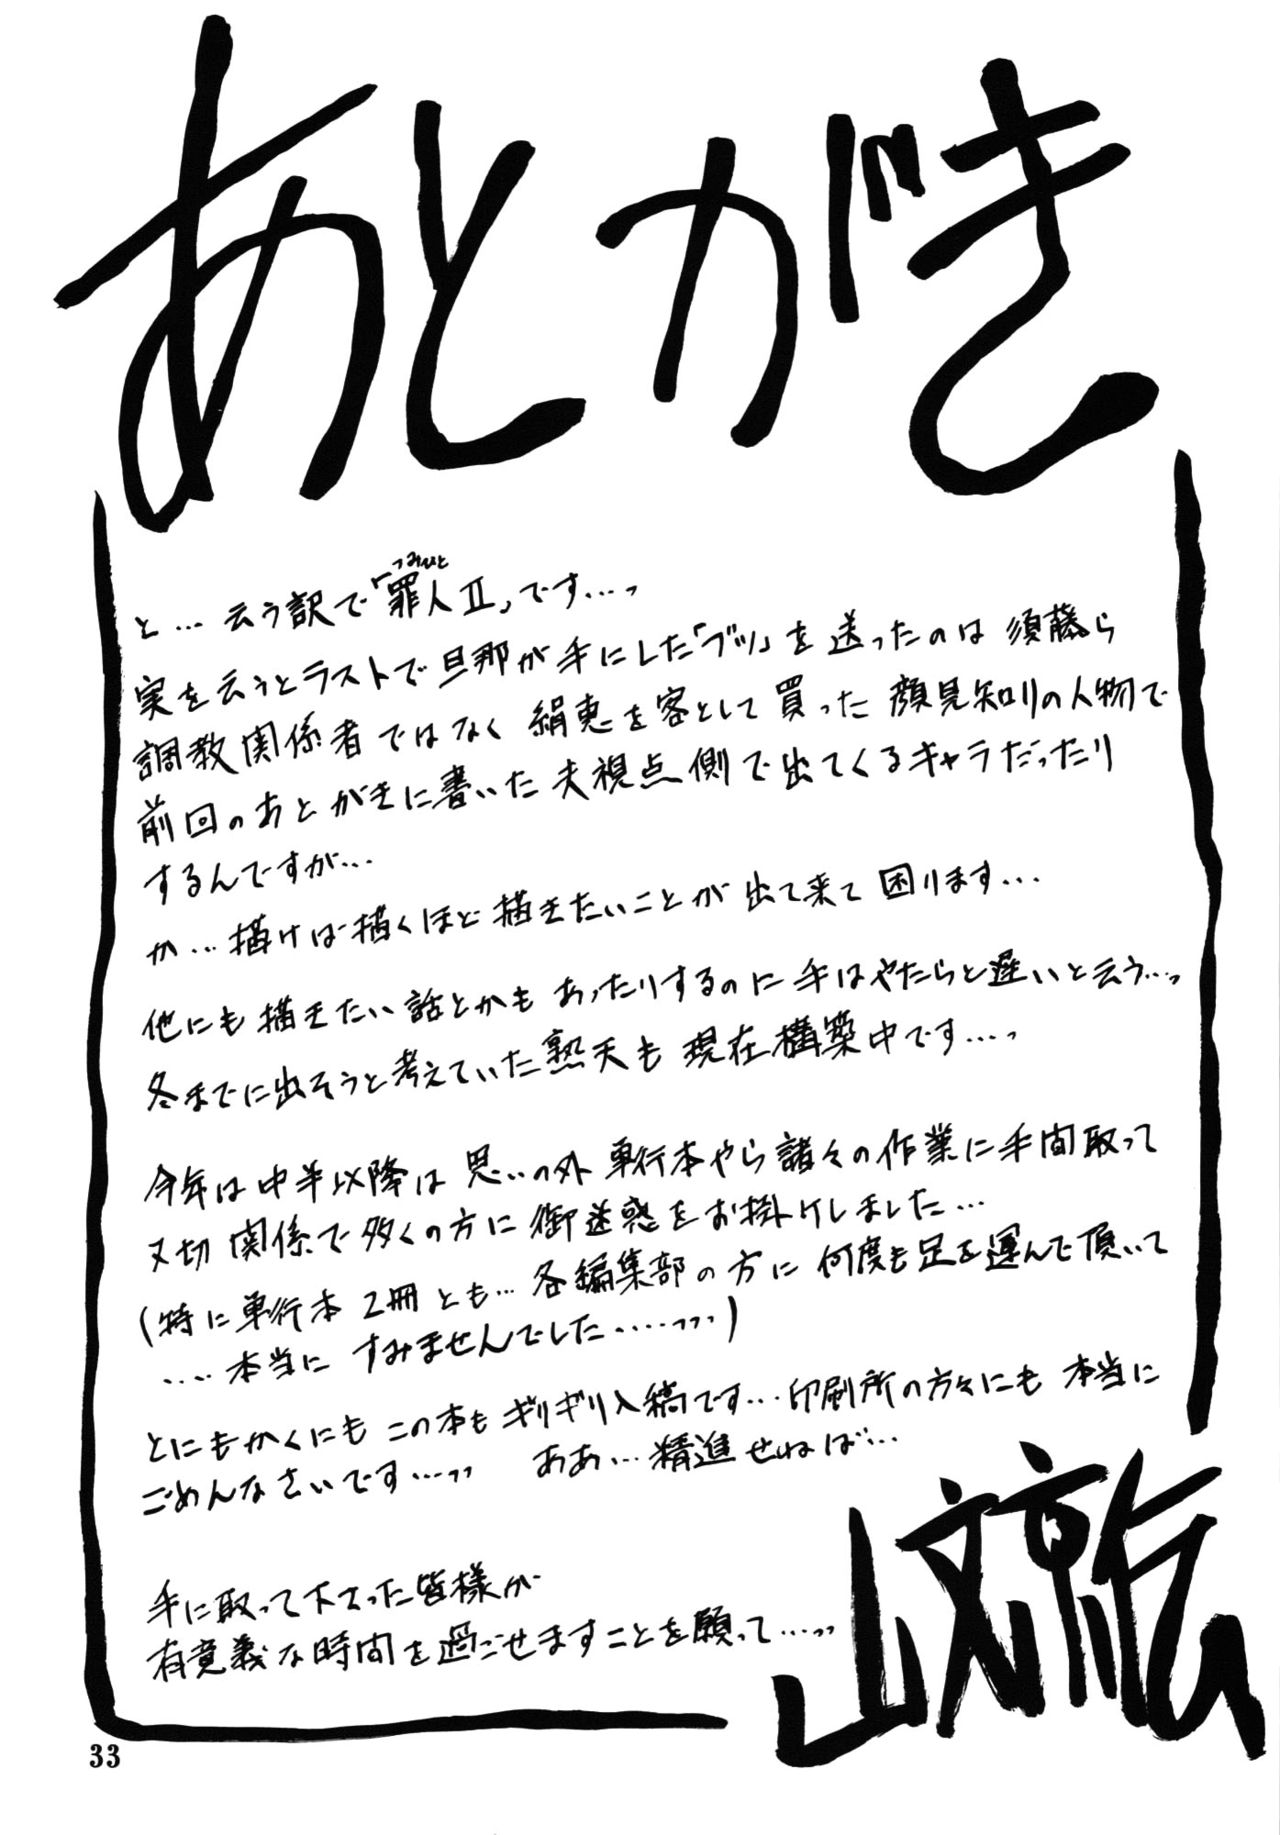 あとがき
と…云う訳で「罪人Ⅱ」です…っ
つみひと
実を云うとラストで旦那が手にした「ブツ」を送ったのは須藤ら
調教関係者ではなく絹恵を客として買った顔見知りの人物で
前回のあとがきに書いた夫視点側で出てくるキャラだったり
するんですが…
か…描けば描くほど描きたいことが出て来て困ります…
他にも描きたい話とかもあったりするのに手はやたらと遅いと云う…っ
冬までに出そうと考えていた熟天も現在構築中です…っ
今年は中半以降は思いの外単行本やら諸々の作業に手間取って
〆切関係で多くの方に御迷惑をお掛けしました…
(特に単行本2冊とも…各編集部の方に何度も足を運んで頂いて
…本当にすみませんでした……っっ)
とにもかくにもこの本もギリギリ入稿です…印刷所の方々にも本当に
ごめんなさいです…っっ ああ…精進せねば…
手に取って下さった皆様が
有意義な時間を過ごせますことを願って…っっ
山文京伝
33